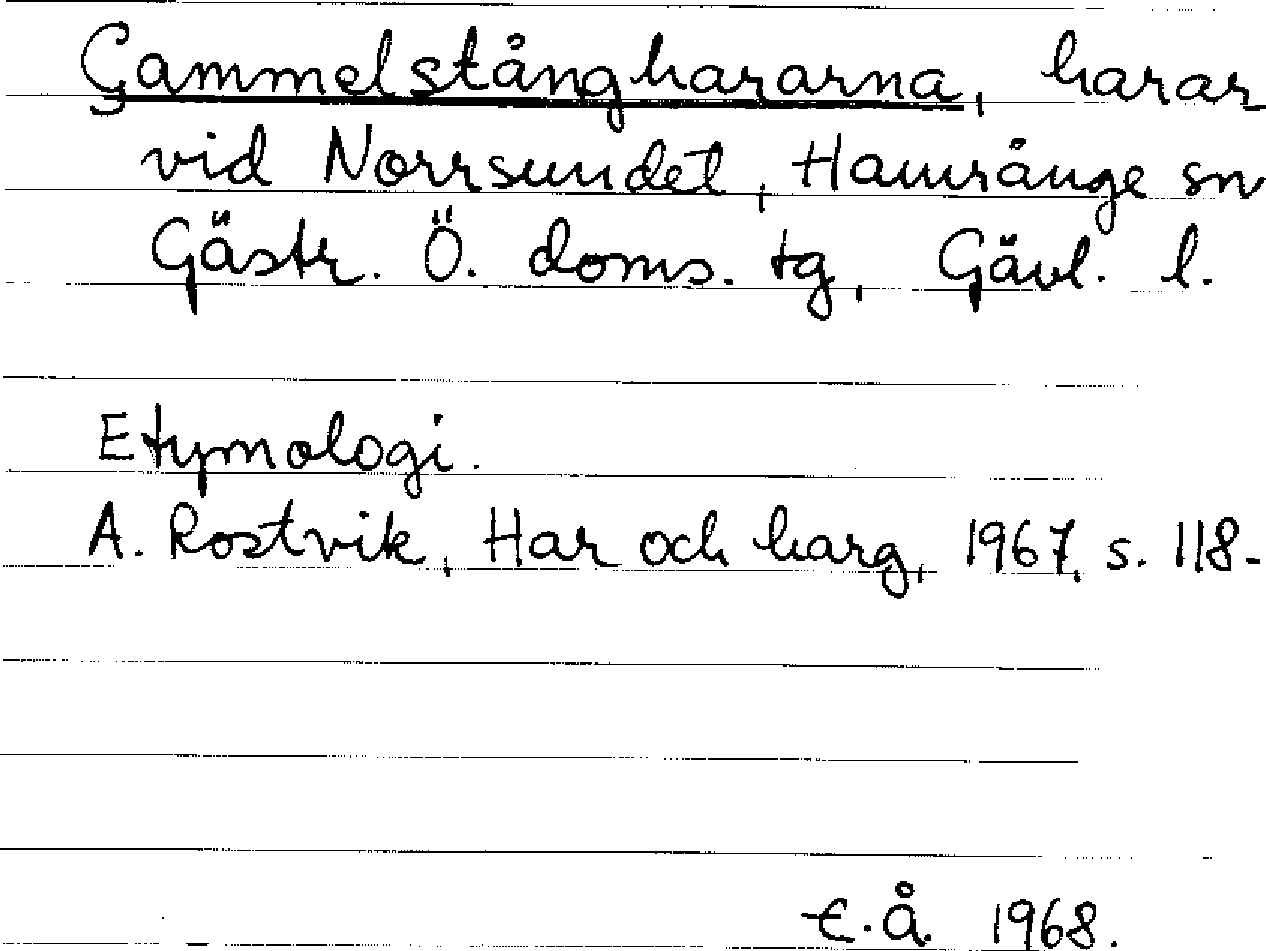 Gammelstånghararna, harar
vid Norrsundet, Hamrånge sn
Gästr. Ö. doms. tg, Gävl. l.
Etymologi.
A. Rostvik, Har och harg, 1967, s. 118.
E.Å 1968.